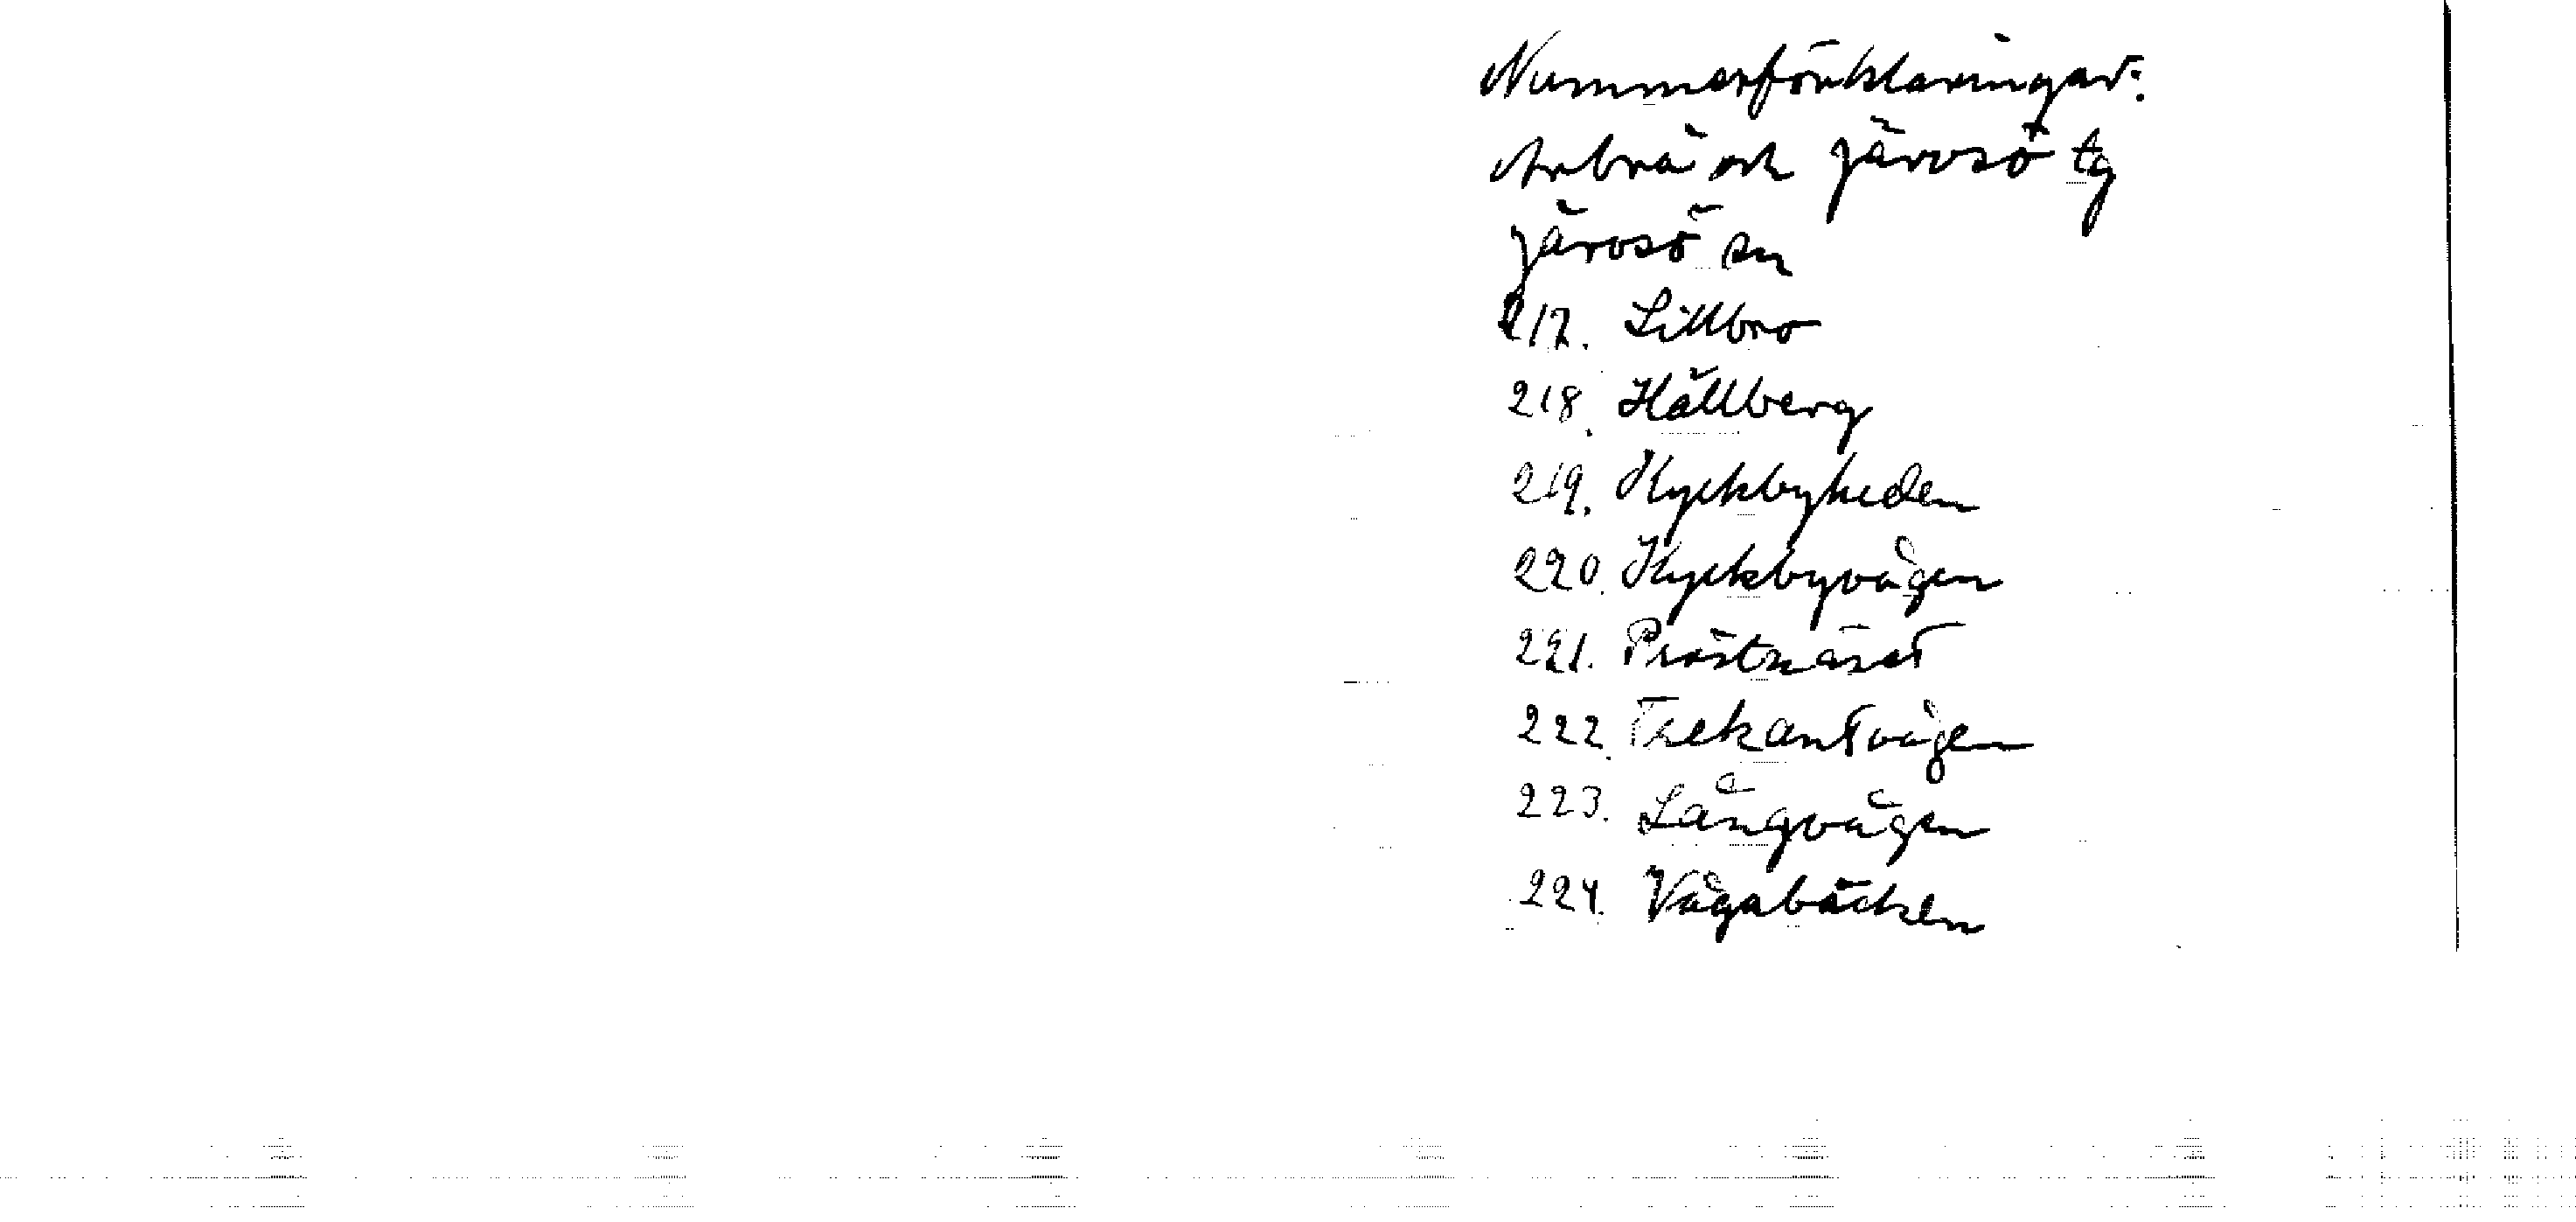 Nummerförklaringar:
Arbrå och Järvsö tg
Järvsö sn
217. Lillbro
218. Hällberg
219. Kyckbyheden
220. Kyckbyvägen
221. Prästnäset
222. Trekantvägen
223. Långvägen
224. Vågabäcken